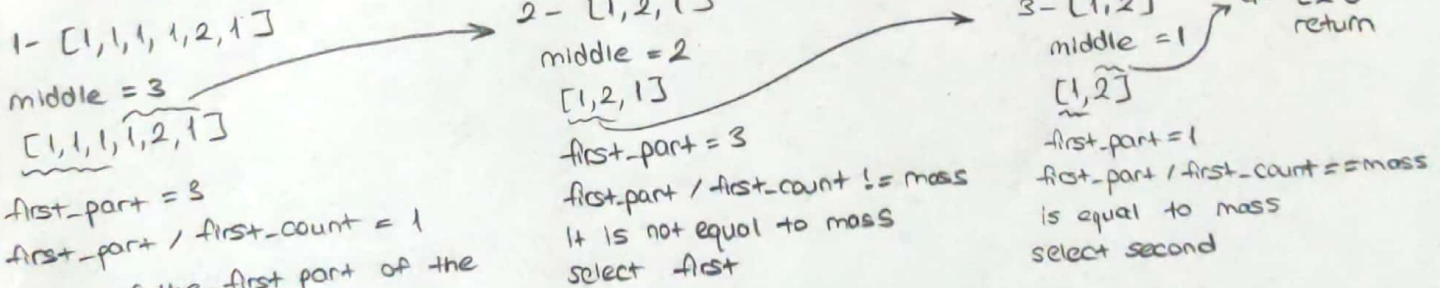 1- [1,1,1,1,2,1]
middle = 3
[1,1,1,1,2,1]
first_part = 3
first_part / first_count = 1
first part of the
2- [1,2,1]
middle = 2
[1,2,1]
first_part = 3
first_part / first_count != mass
It is not equal to mass
select first
3- [1,2]
middle = 1
[1,2]
first_part = 1
first_part / first_count == mass
is equal to mass
select second
return